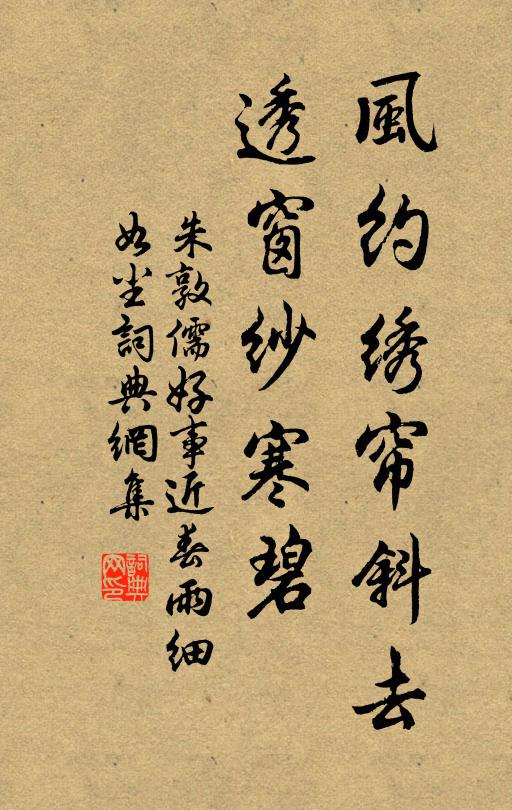 風约绣帘斜去
透窗纱寒碧
朱敦儒好事近春雨细
如尘詞典網集
詞典
网印